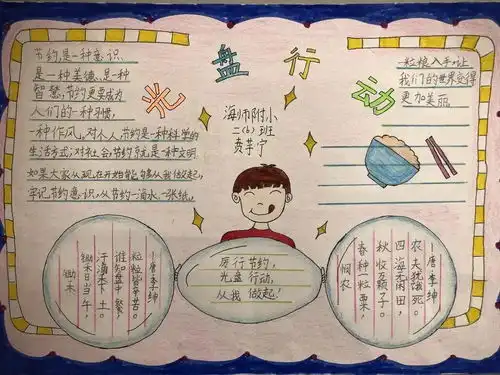 光盘行动
节约,是一种意识、
是一种美德、是一种
智慧,节约更要成为
人们的一种习惯,
一种作风。对个人,节约是一种科学的
生活方式;对社会,节约就是一种文明
如果大家从现在开始能够从我做起,
牢记节约意识,从节约一滴水、一张纸。
海师附小
二(6)班
一粒粮入手,让
我们的世界变得
更加美丽。
锄禾
锄禾日当午,
汗滴禾下土。
谁知盘中餐,
粒粒皆辛苦。
—唐·李绅
厉行节约,
光盘行动,
从我做起!
悯农
春种一粒粟,
秋收万颗子。
四海无闲田,
农夫犹饿死。
—唐·李绅